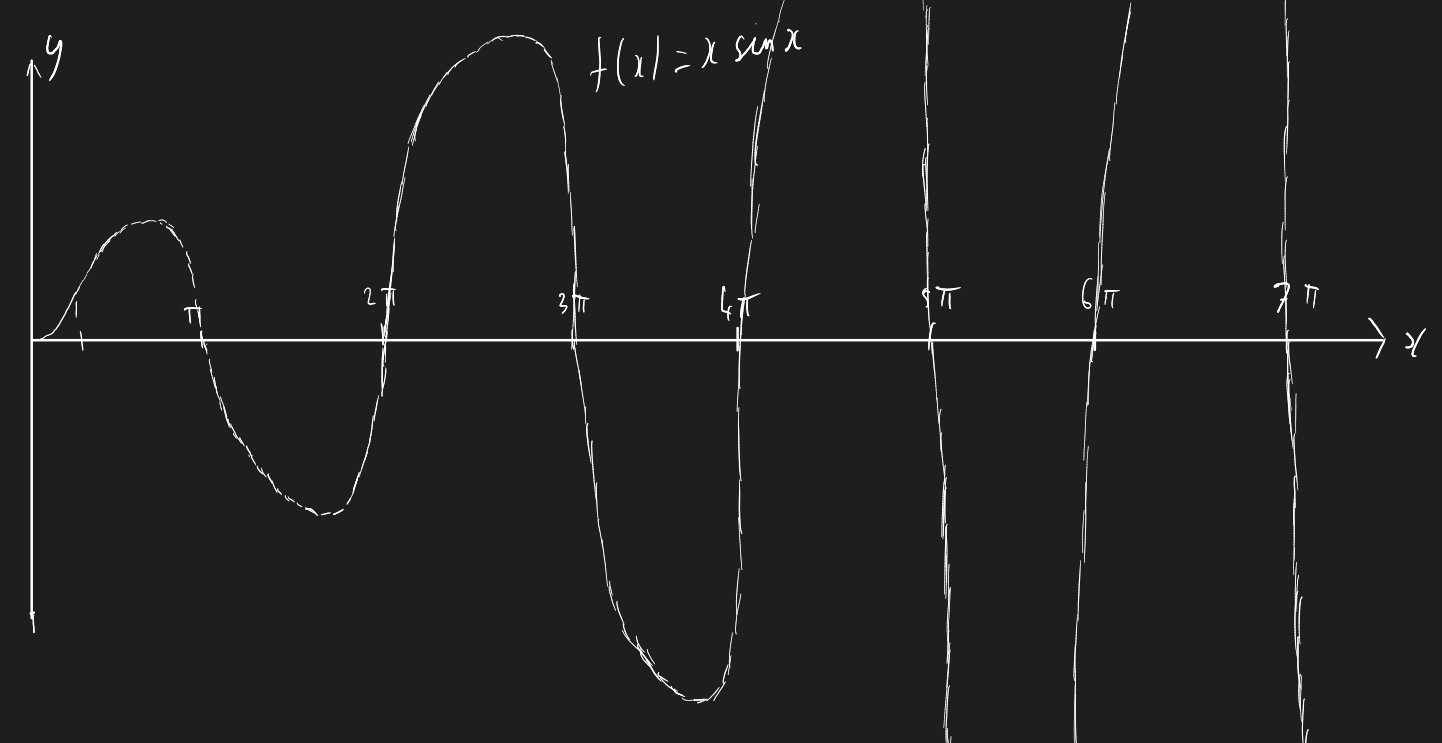 y
f(x) = x sin x
2π 3π 4π 5π 6π 7π
1 π
x